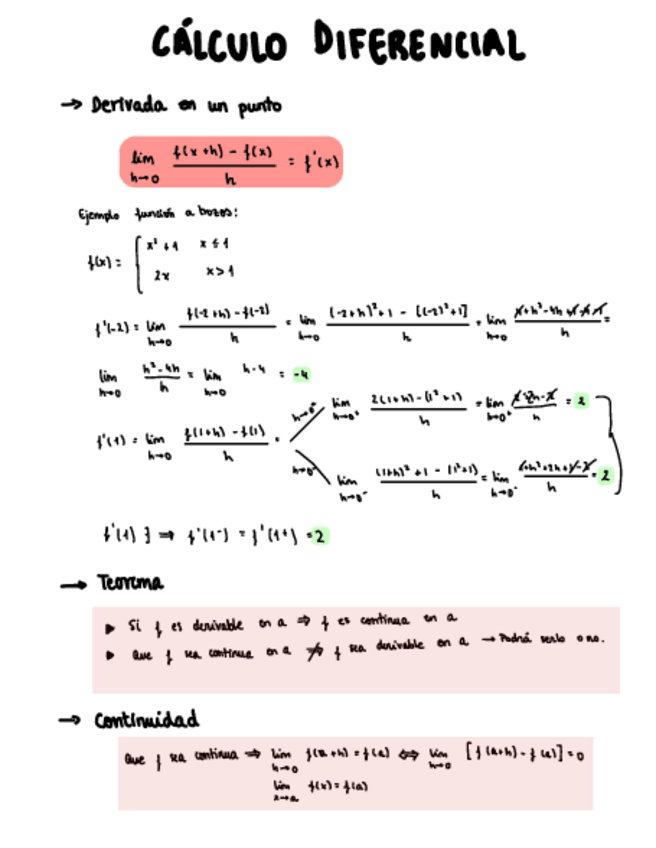 CÁLCULO DIFERENCIAL
→ Derivada en un punto
lim h→0 (f(x+h) - f(x)) / h = f'(x)
Ejemplo función a trozos:
f(x) = { x²+1 x≤1
2x x>1
f'(-2) = lim h→0 (f(-2+h) - f(-2)) / h = lim h→0 ((-2+h)²+1 - [(-2)²+1]) / h = lim h→0 (4+h²-4h+1-4-1) / h =
lim h→0 (h²-4h) / h = lim h→0 h-4 = -4
f'(1) = lim h→0 (f(1+h) - f(1)) / h =
h→0⁺ lim h→0⁺ (2(1+h) - (1²+1)) / h = lim h→0⁺ (2+2h-2) / h = 2
h→0⁻ lim h→0⁻ ((1+h)²+1 - (1²+1)) / h = lim h→0⁻ (1+h²+2h+1-2) / h = 2
f'(1) } ⇒ f'(1-) = f'(1+) = 2
→ Teorema
▶ Si f es derivable en a ⇒ f es continua en a
▶ Que f sea continua en a ⇏ f sea derivable en a → Podrá serlo o no.
→ Continuidad
Que f sea continua ⇒ lim h→0 f(a+h) = f(a) ⇔ lim h→0 [f(a+h) - f(a)] = 0
lim x→a f(x) = f(a)